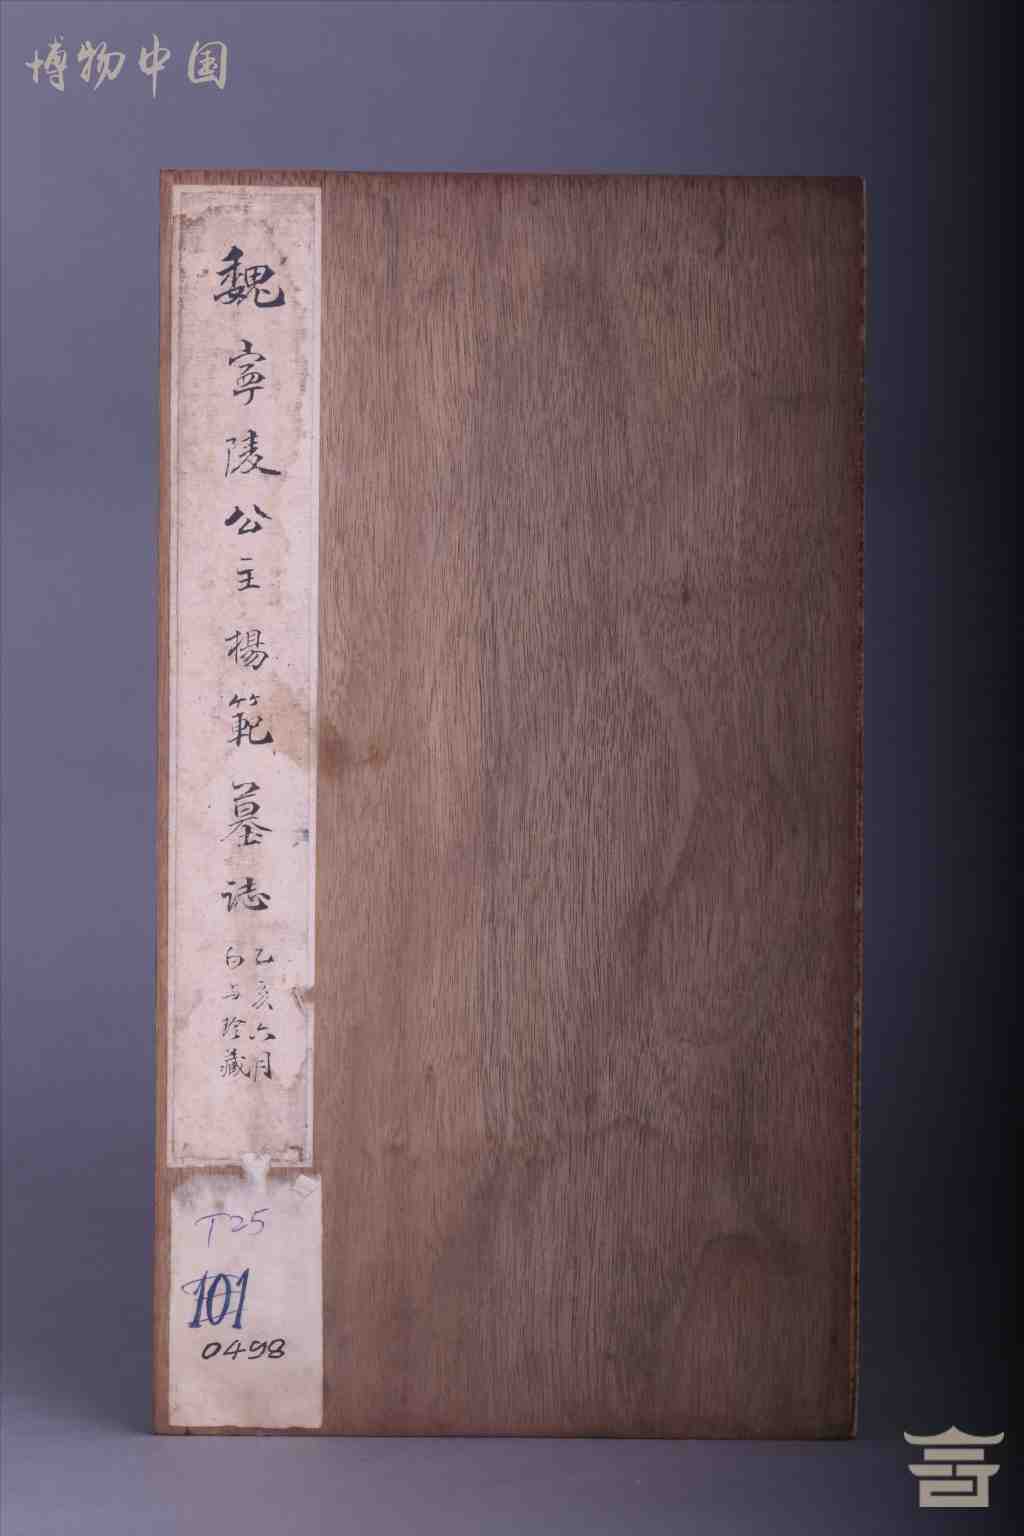 博物中国
魏寧陵公主楊範墓誌
乙亥六月
白与珍藏
T25
101
0498